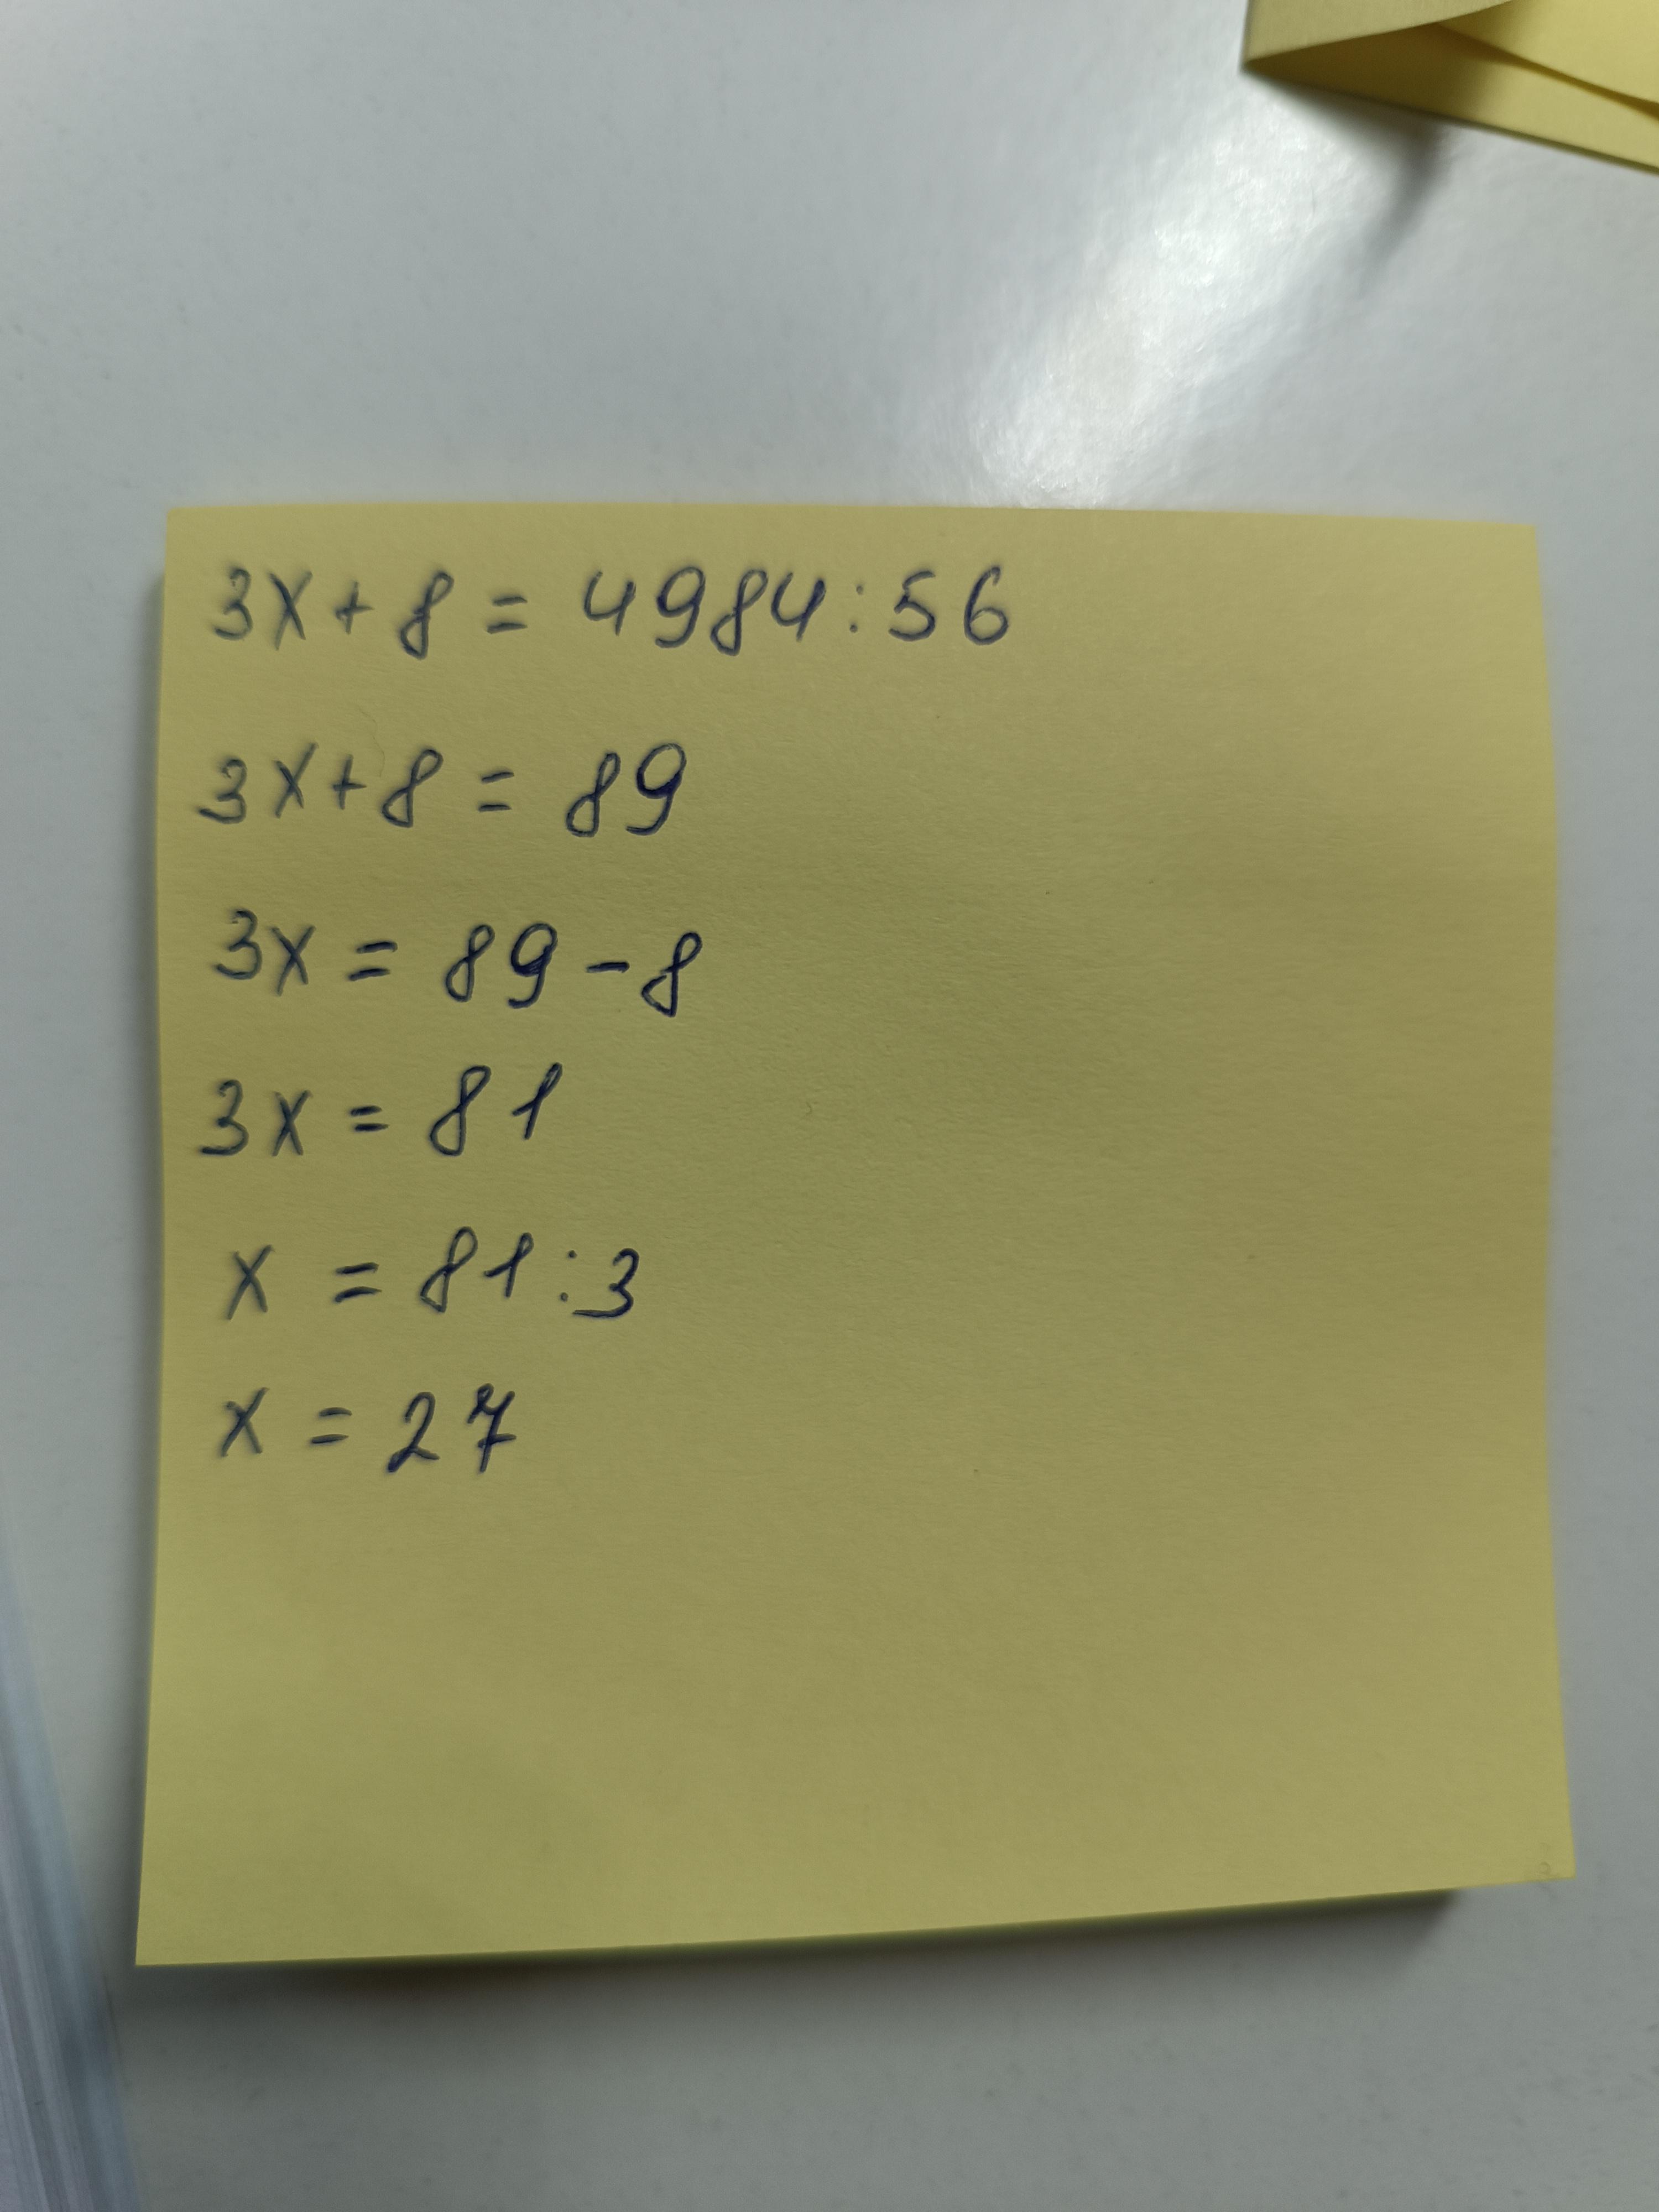 3x + 8 = 4984 : 56
3x + 8 = 89
3x = 89 - 8
3x = 81
x = 81 : 3
x = 27